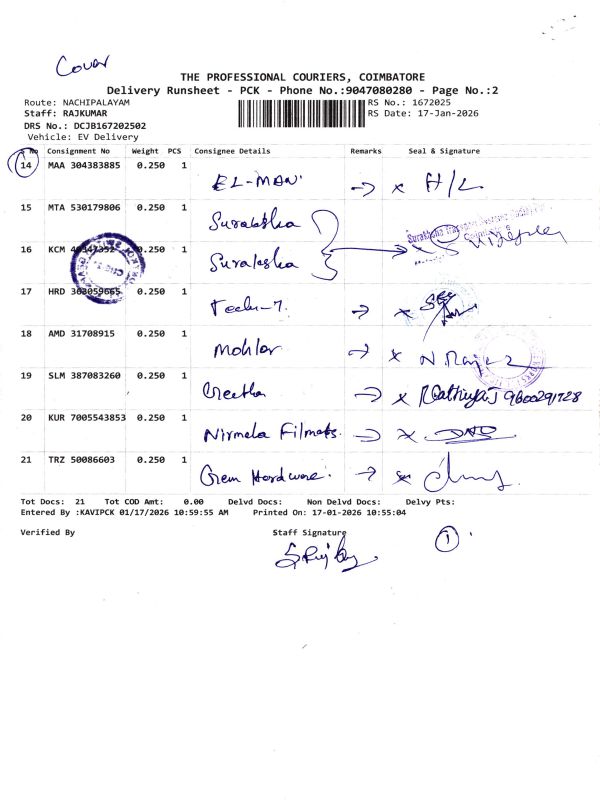 Cover
THE PROFESSIONAL COURIERS, COIMBATORE
Delivery Runsheet - PCK - Phone No.:9047080280 - Page No.:2
Route: NACHIPALAYAM
RS No.: 1672025
Staff: RAJKUMAR
RS Date: 17-Jan-2026
DRS No.: DCJB167202502
Vehicle: EV Delivery
S No Consignment No Weight PCS Consignee Details Remarks Seal & Signature
14 MAA 304383885 0.250 1 EL-MAN. → x H/L
15 MTA 530179806 0.250 1 Suraksha
16 KCM 0.250 1 Suraksha → x
17 HRD 0.250 1 → x
18 AMD 31708915 0.250 1 → x
19 SLM 387083260 0.250 1 → x 9600291728
20 KUR 7005543853 0.250 1 Nirmala → x
21 TRZ 50086603 0.250 1 Gem Hardware. →
Tot Docs: 21 Tot COD Amt: 0.00 Delvd Docs: Non Delvd Docs: Delvy Pts:
Entered By :KAVIPCK 01/17/2026 10:59:55 AM Printed On: 17-01-2026 10:55:04
Verified By Staff Signature 1